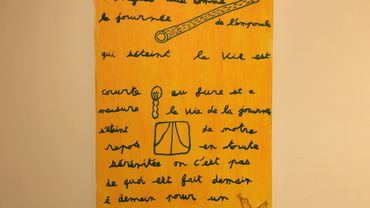 comme
la journée de l'ampoule
qui séteint la vie est
courte au fure et a
meusure la vie de la journée
s'éteint de notre
repos en toute
sérénitée on c'est pas
de quoi est fait demain
é demain pour un